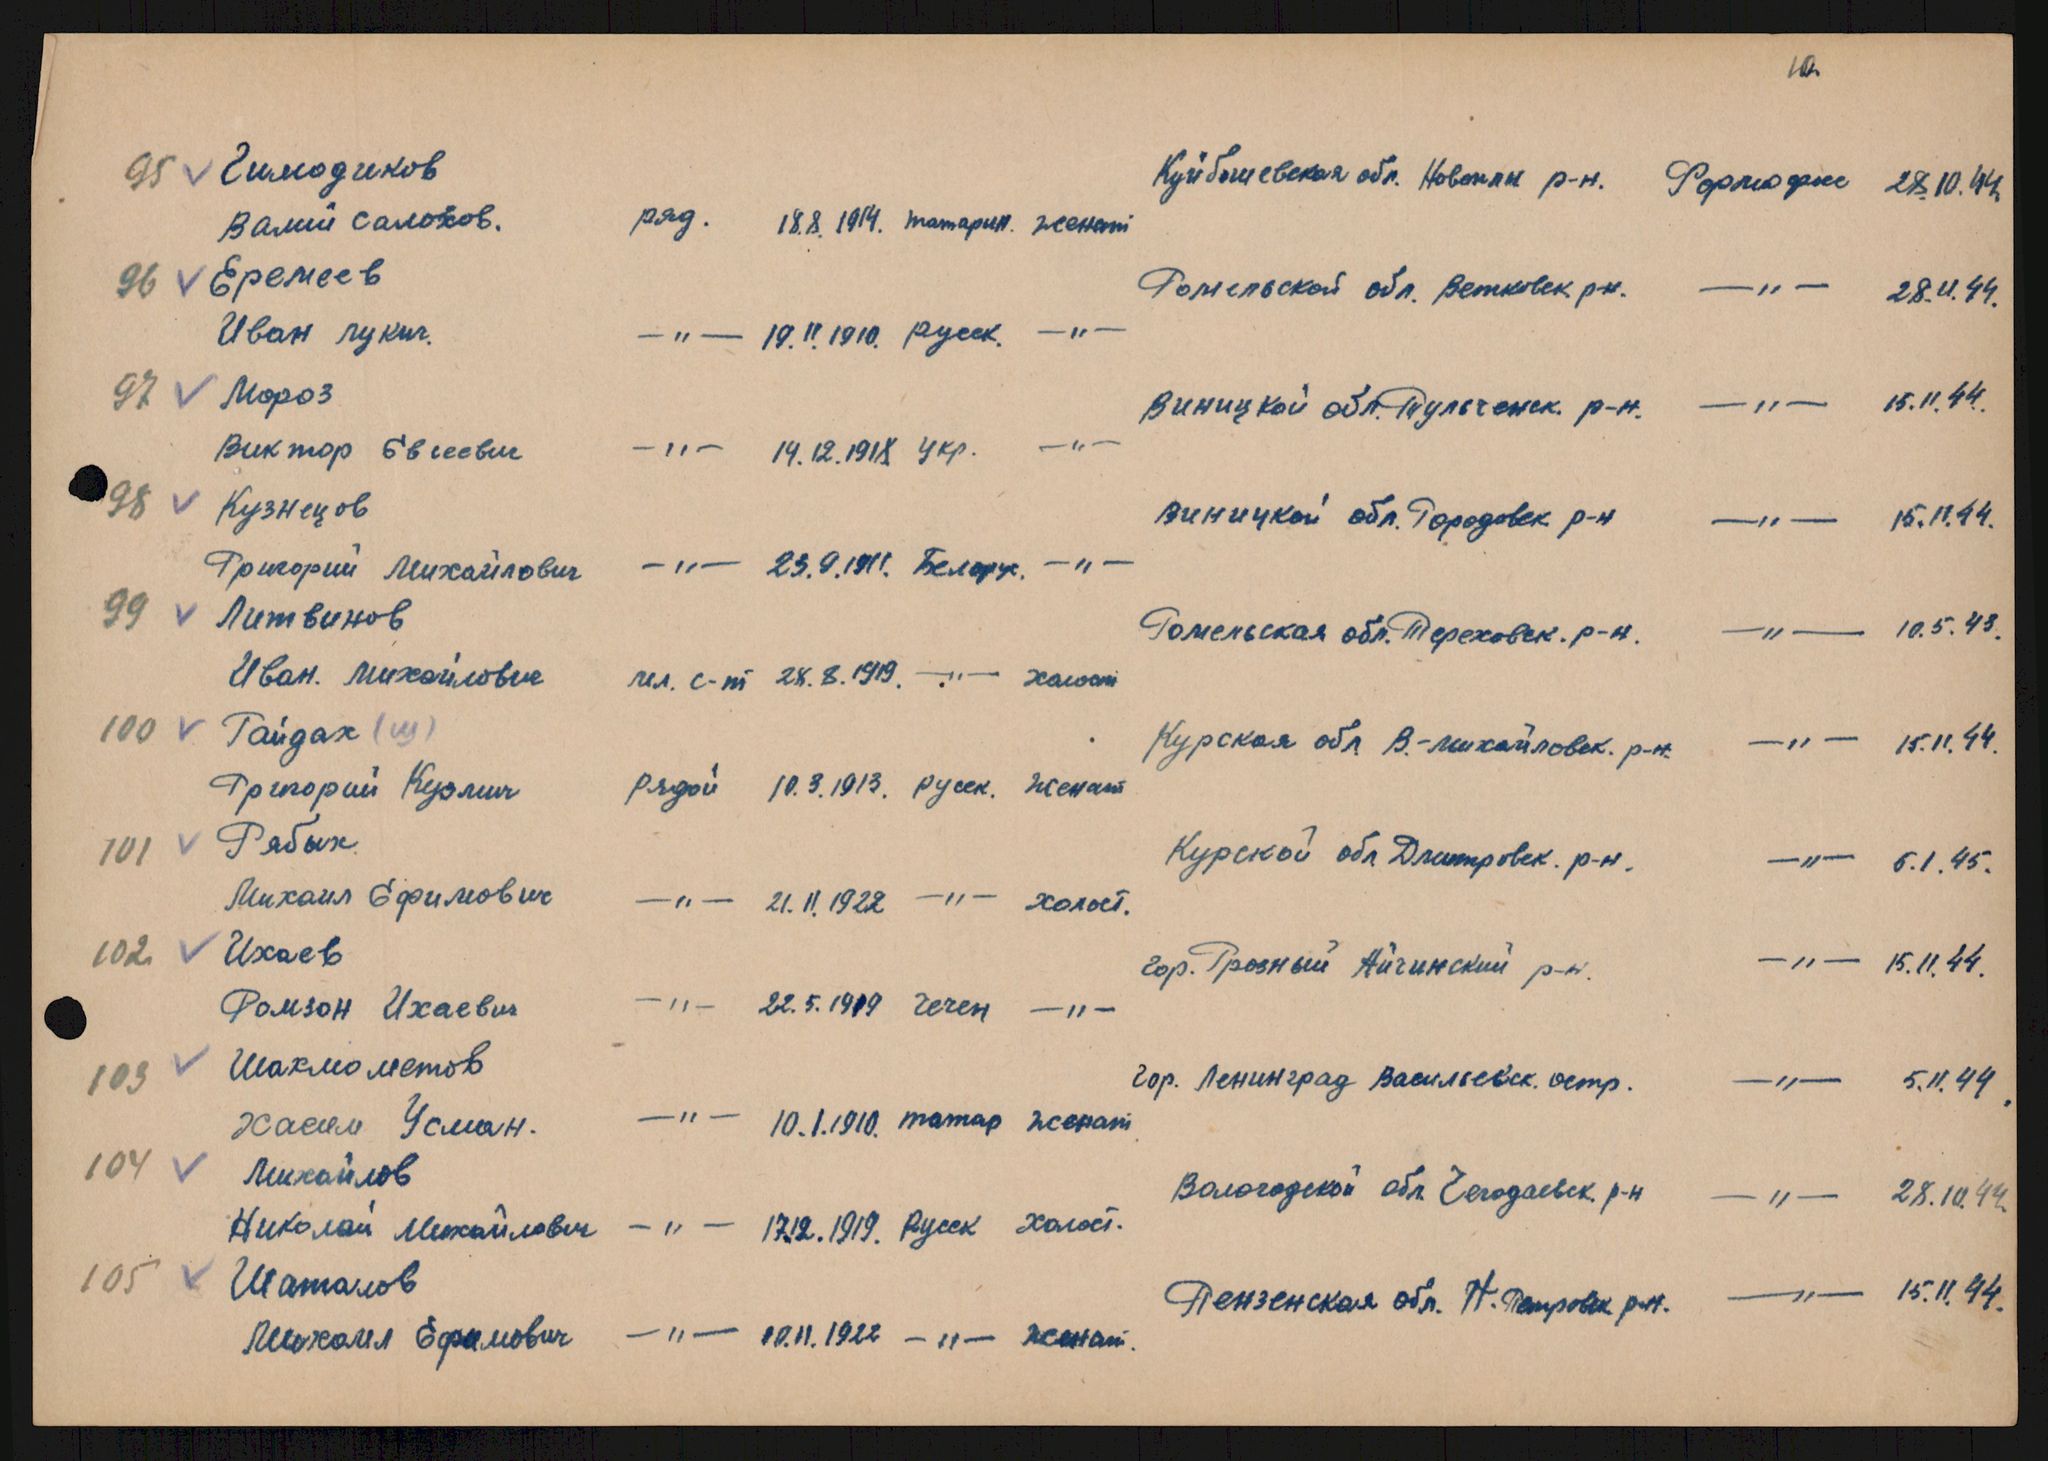 10
95 ✓ Гимадиков Куйбышевская обл. Новоклы р-н. Формофие 28.10.44.
Валий Салохов. ряд. 18.8.1914. татарин. женат
96 ✓ Еремеев Гомельской обл. Ветковск р-н. —"— 28.11.44.
Иван Лукич. —"— 19.11.1910. русск. —"—
97 ✓ Мороз Виницкой обл. Тульченск. р-н. —"— 15.11.44.
Виктор Евсеевич —"— 14.12.1918 укр. —"—
98 ✓ Кузнецов Виницкой обл. Городовск р-н —"— 15.11.44.
Григорий Михайлович —"— 23.9.1911. Белорус. —"—
99 ✓ Литвинов Гомельская обл. Тереховск. р-н. —"— 10.5.43.
Иван. Михайлович мл. с-т 28.8.1919. —"— холост
100 ✓ Гайдах (щ) Курская обл В.-Михайловск. р-н. —"— 15.11.44.
Григорий Кузмич рядой 10.3.1913. русск. женат
101 ✓ Рябых Курской обл Дмитровск. р-н. —"— 6.1.45.
Михаил Ефимович —"— 21.11.1922 —"— холост.
102 ✓ Ихаев гор. Грозный Айчинский р-н. —"— 15.11.44.
Рамзан Ихаевич —"— 22.5.1919 чечен —"—
103 ✓ Шахмаметов гор. Ленинград Васильевск. остр. —"— 5.11.44.
Хасим Усман. —"— 10.1.1910. татар женат
104 ✓ Михайлов Вологодской обл. Чегодаевск. р-н —"— 28.10.44.
Николай Михайлович —"— 17.12.1919. Русск холост.
105 ✓ Шаталов Пензенская обл. Н. Петровск р-н. —"— 15.11.44.
Михаил Ефимович —"— 10.11.1922 —"— женат.